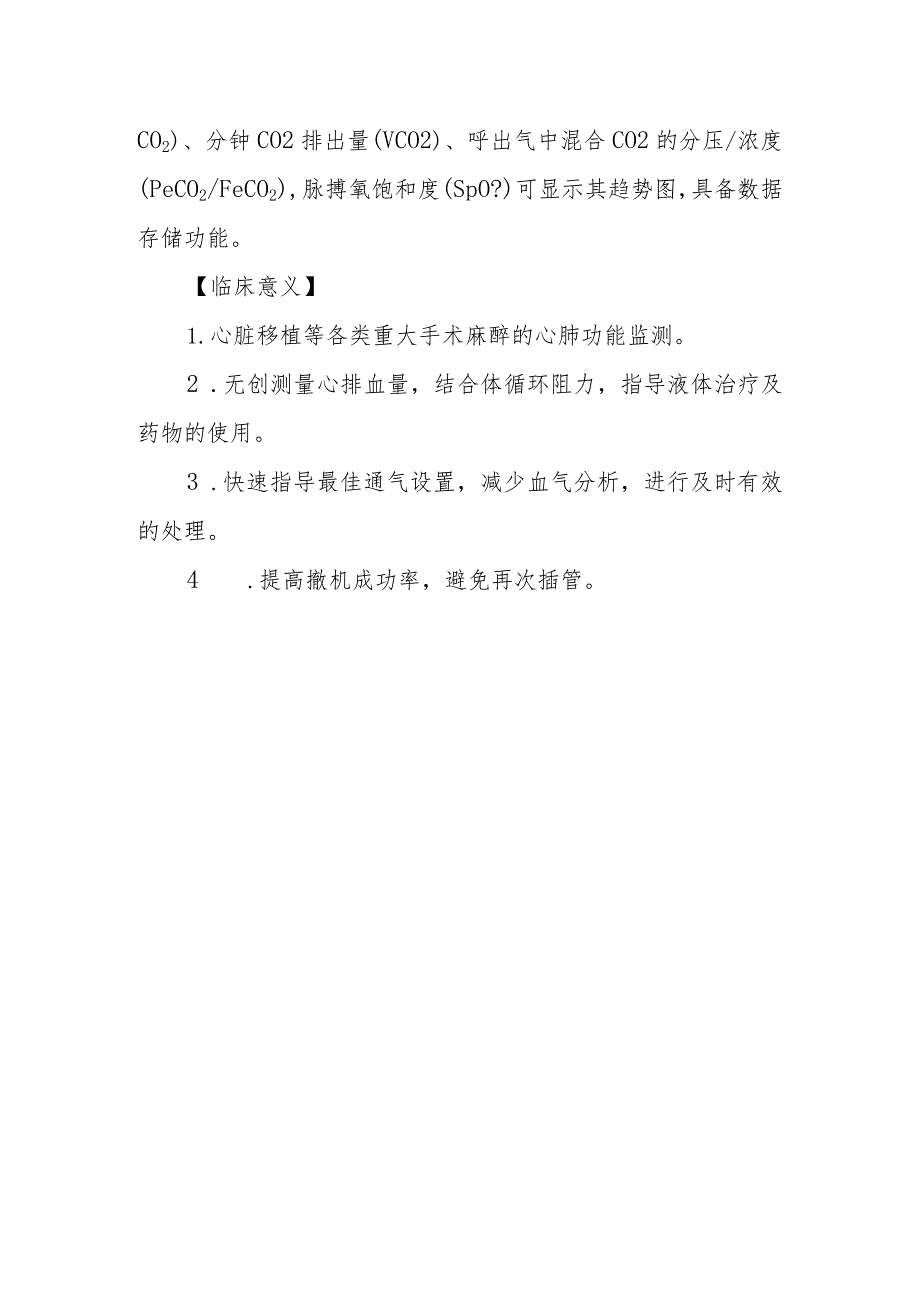 CO₂)、分钟CO2排出量(VCO2)、呼出气中混合CO2的分压/浓度
(PeCO₂/FeCO₂),脉搏氧饱和度(SpO?)可显示其趋势图,具备数据
存储功能。
【临床意义】
1.心脏移植等各类重大手术麻醉的心肺功能监测。
2 .无创测量心排血量，结合体循环阻力，指导液体治疗及
药物的使用。
3 .快速指导最佳通气设置，减少血气分析，进行及时有效
的处理。
4 .提高撤机成功率，避免再次插管。